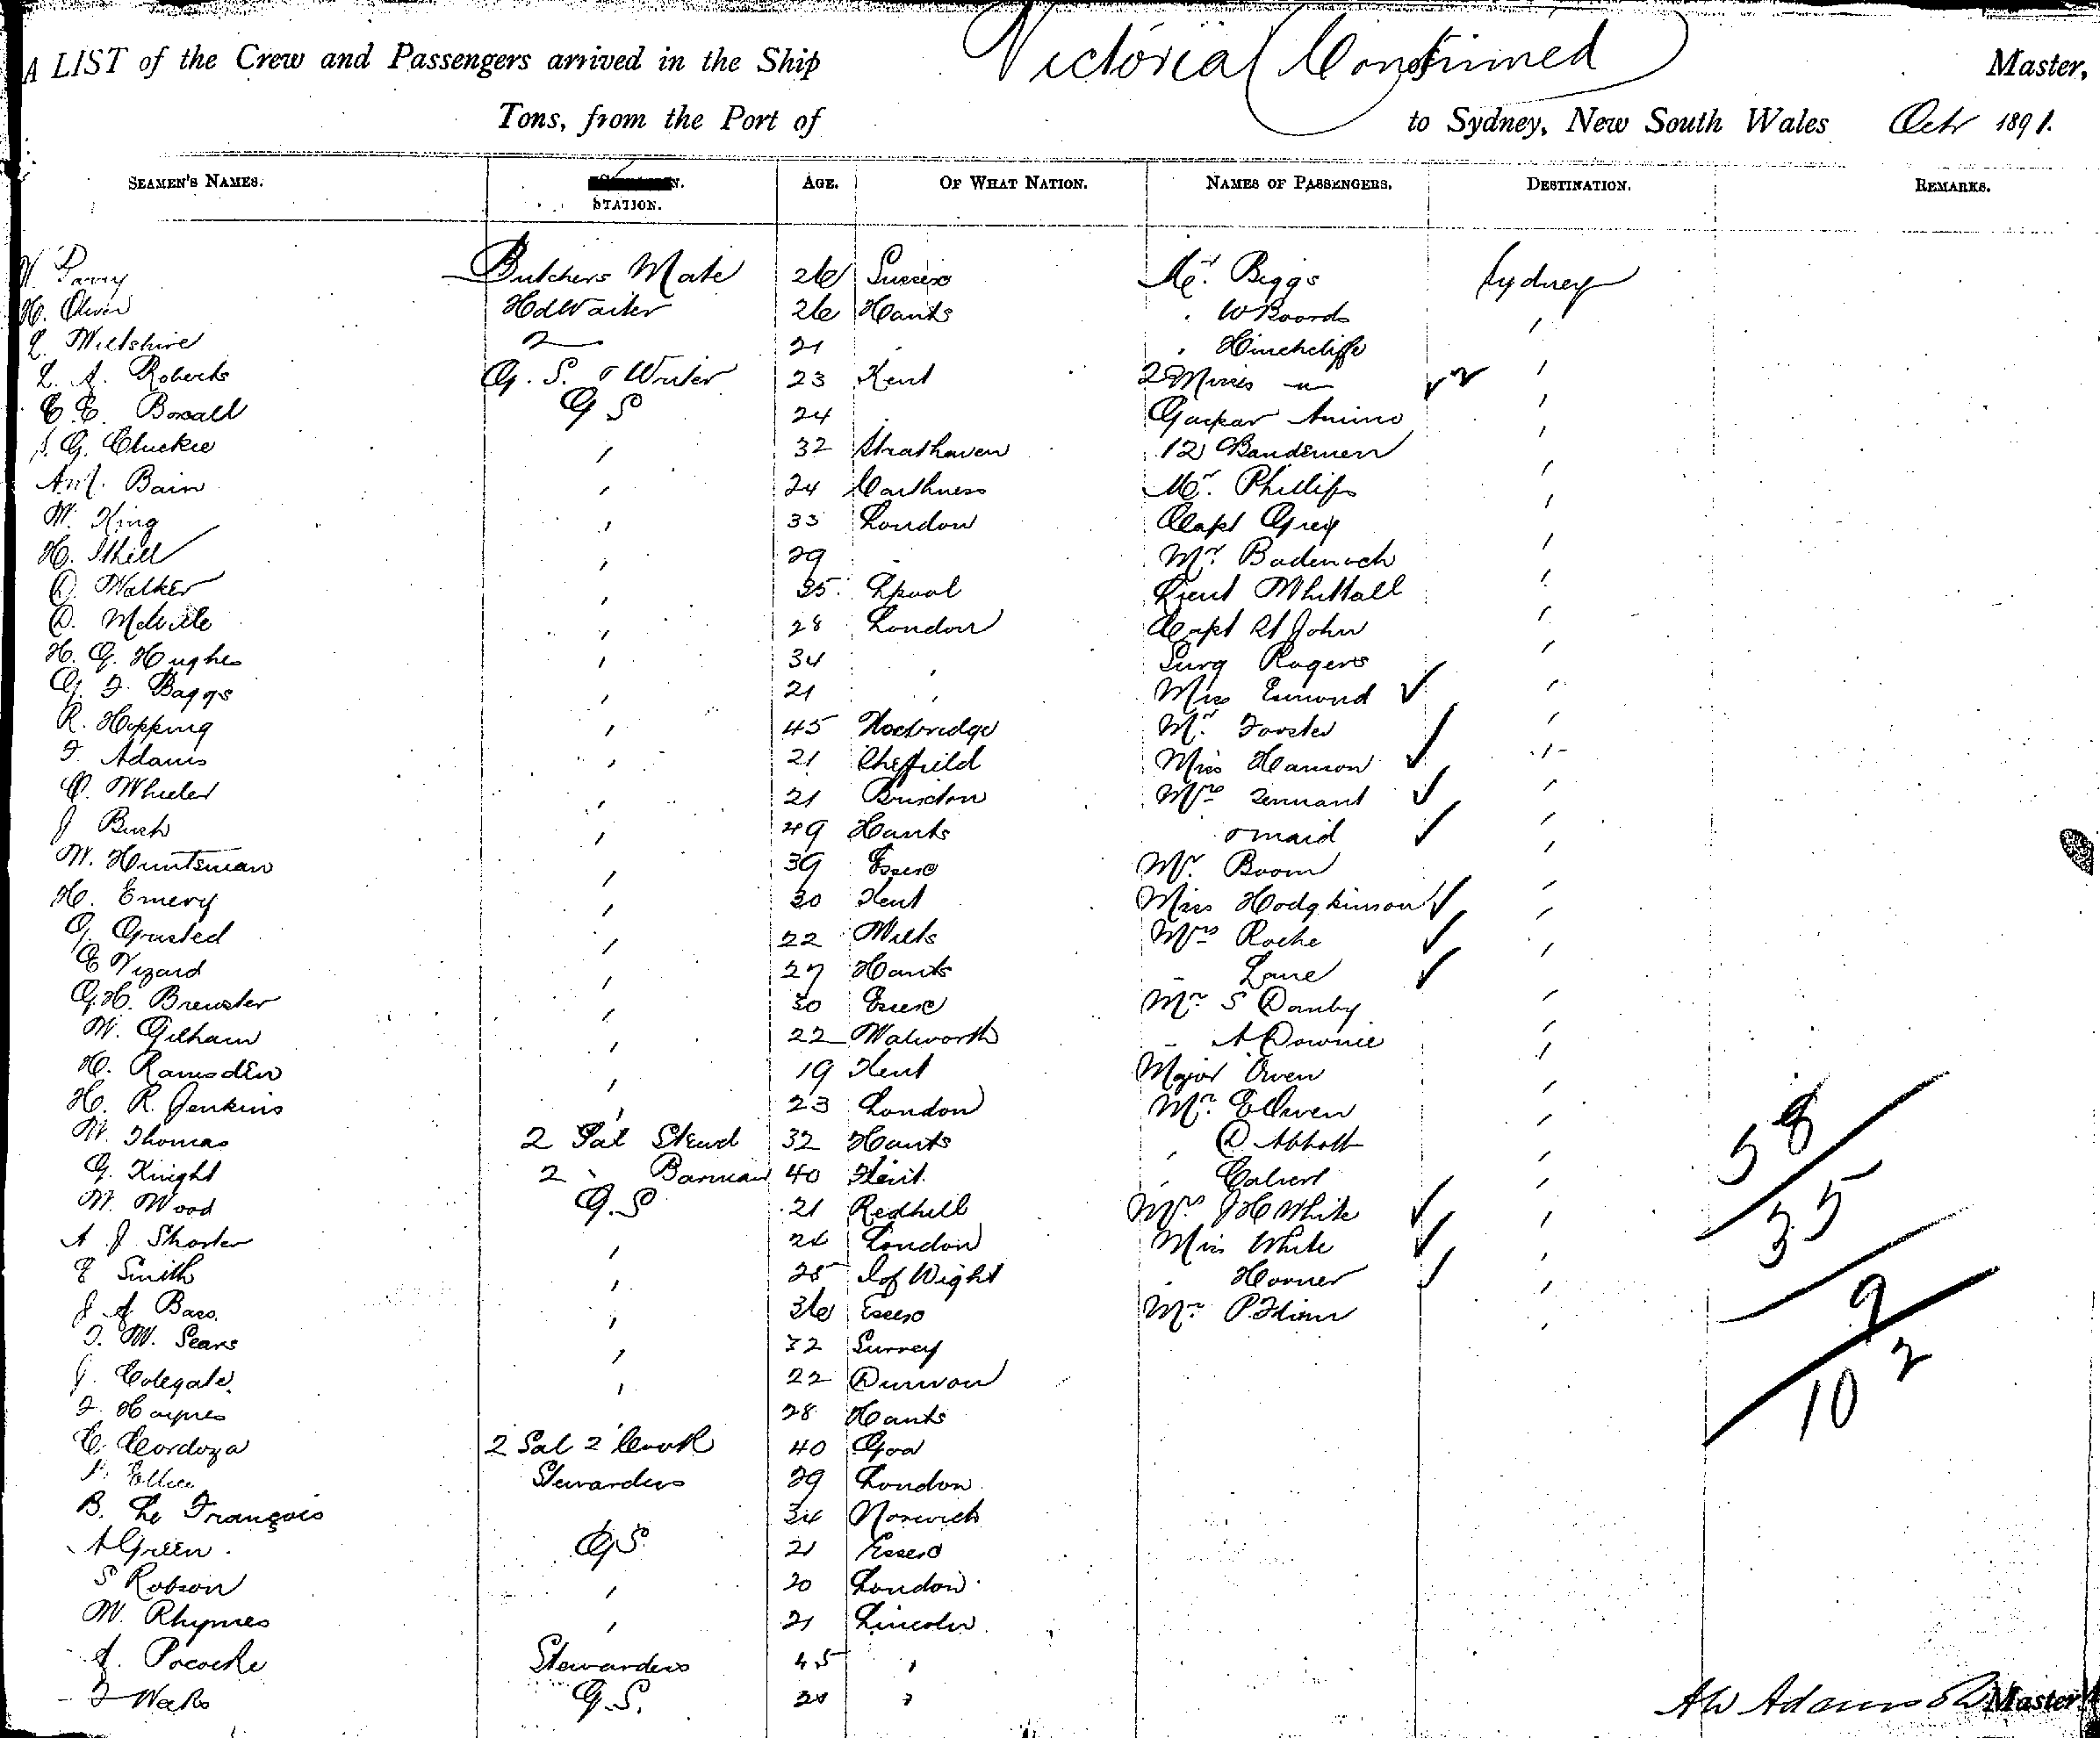 A LIST of the Crew and Passengers arrived in the Ship Victoria Continued Master,
Tons, from the Port of to Sydney, New South Wales Octr 1891.
SEAMEN'S NAMES. STATION. AGE. OF WHAT NATION. NAMES OF PASSENGERS. DESTINATION. REMARKS.
Butchers Mate 26 Sussex Mr. Biggs Sydney
H. Oliver Hd Waiter 26 Hants W Boords
Wiltshire 2 21 Hinchcliffe
L. A. Roberts G. S. & Writer 23 Kent 2 Misses 2
E. E. Boxall G S 24 Gaspar
J. G. Cluckie 32 Strathaven 12 Bandsmen
Bain 24 Caithness Mr. Phillips
W. King 33 London Capt Grey
H. Skill 29 Mr Badenoch
D. Walker 35 Lpool Lieut Whittall
D. Melville 28 London Capt St John
H. G. Hughes 34 Surg Rogers
G. F. Baggs 21 Miss
R. Hopping 45 Mr. Forster
F. Adams 21 Sheffield Miss
C. Wheeler 21 Brixton Mrs Tennant
J Bush 49 Hants & maid
W. Huntsman 39 Essex Mr. Boom
H. Emery 30 Kent Miss Hodgkinson
G. Grusted 22 Wilts Mrs Roche
E Vizard 27 Hants Lane
G. H. Brewster 30 Essex Mr S Danby
W. Gilham 22 Walworth A Downie
H. Ramsden 19 Kent Major Owen
H. R. Jenkins 23 London Mr. E Owen
W. Thomas 2 Sal Stewd 32 Hants D Abbott
G. Knight 2 Barman 40 Kent Calvert
W. Wood G. S 21 Redhill Mrs J H White
A J Shorter London Miss White
E Smith 25 I of Wight Horner
J A Bass. 36 Essex Mr
F. W. Sears 32 Surrey
J. Colegate. 22
F. Haynes 28 Hants
C. Cordoza 2 Sal 2 Cook 40 Goa
Ellice Stewardess 29 London
B. Le François 34 Norwich
A Green. G S. 21 Essex
S Robson 20 London
W. Rhymes 21 Lincoln
A. Pococke Stewardess 45
F Weeks G. S.
58
35
9
10 2
A W Adamson Master